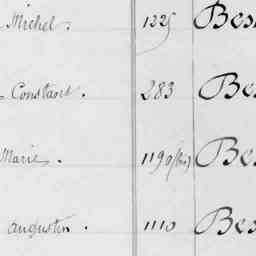 Michel. 1225 Bes
Constant. 283 Be
Marie. 1190 (bis) Be
augustin. 1110 Bes